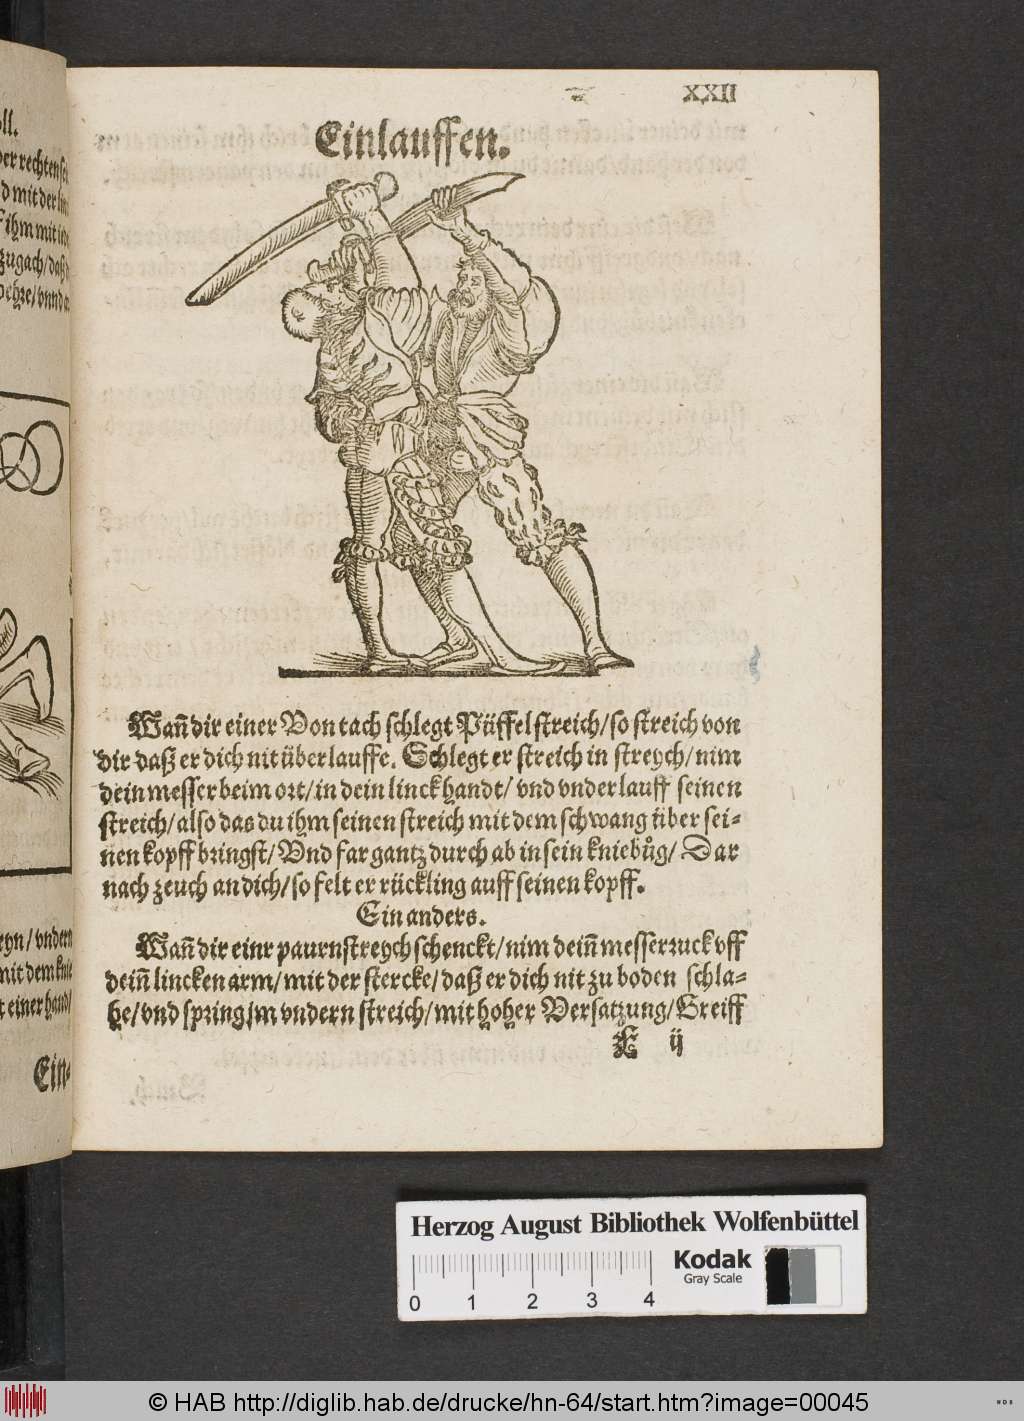 XXII
Einlauffen.
Wañ dir einer Von tach schlegt Püffelstreich/so streich von
dir daß er dich nit überlauffe. Schlegt er streich in streych/nim
dein messer beim ort/in dein linck handt/ vnd vnderlauff seinen
streich/also das du ihm seinen streich mit dem schwang über sei=
nen kopff bringst/Vnd far gantz durch ab in sein kniebůg/ Dar
nach zeuch an dich/so felt er rückling auff seinen kopff.
Ein anders.
Wañ dir einr paurnstreych schenckt/nim deiñ messer zuck vff
deiñ lincken arm/mit der stercke/daß er dich nit zu boden schla=
he/vnd spring jm vndern streich/mit hoher Versatzung/Greiff
E ij
ll.
der rechten
d mit der
ihm mit
zugach/daß
eyn/vndern
mit dem knie
t einer hand/
Ein=
Herzog August Bibliothek Wolfenbüttel
Kodak
Gray Scale
0 1 2 3 4
© HAB http://diglib.hab.de/drucke/hn-64/start.htm?image=00045